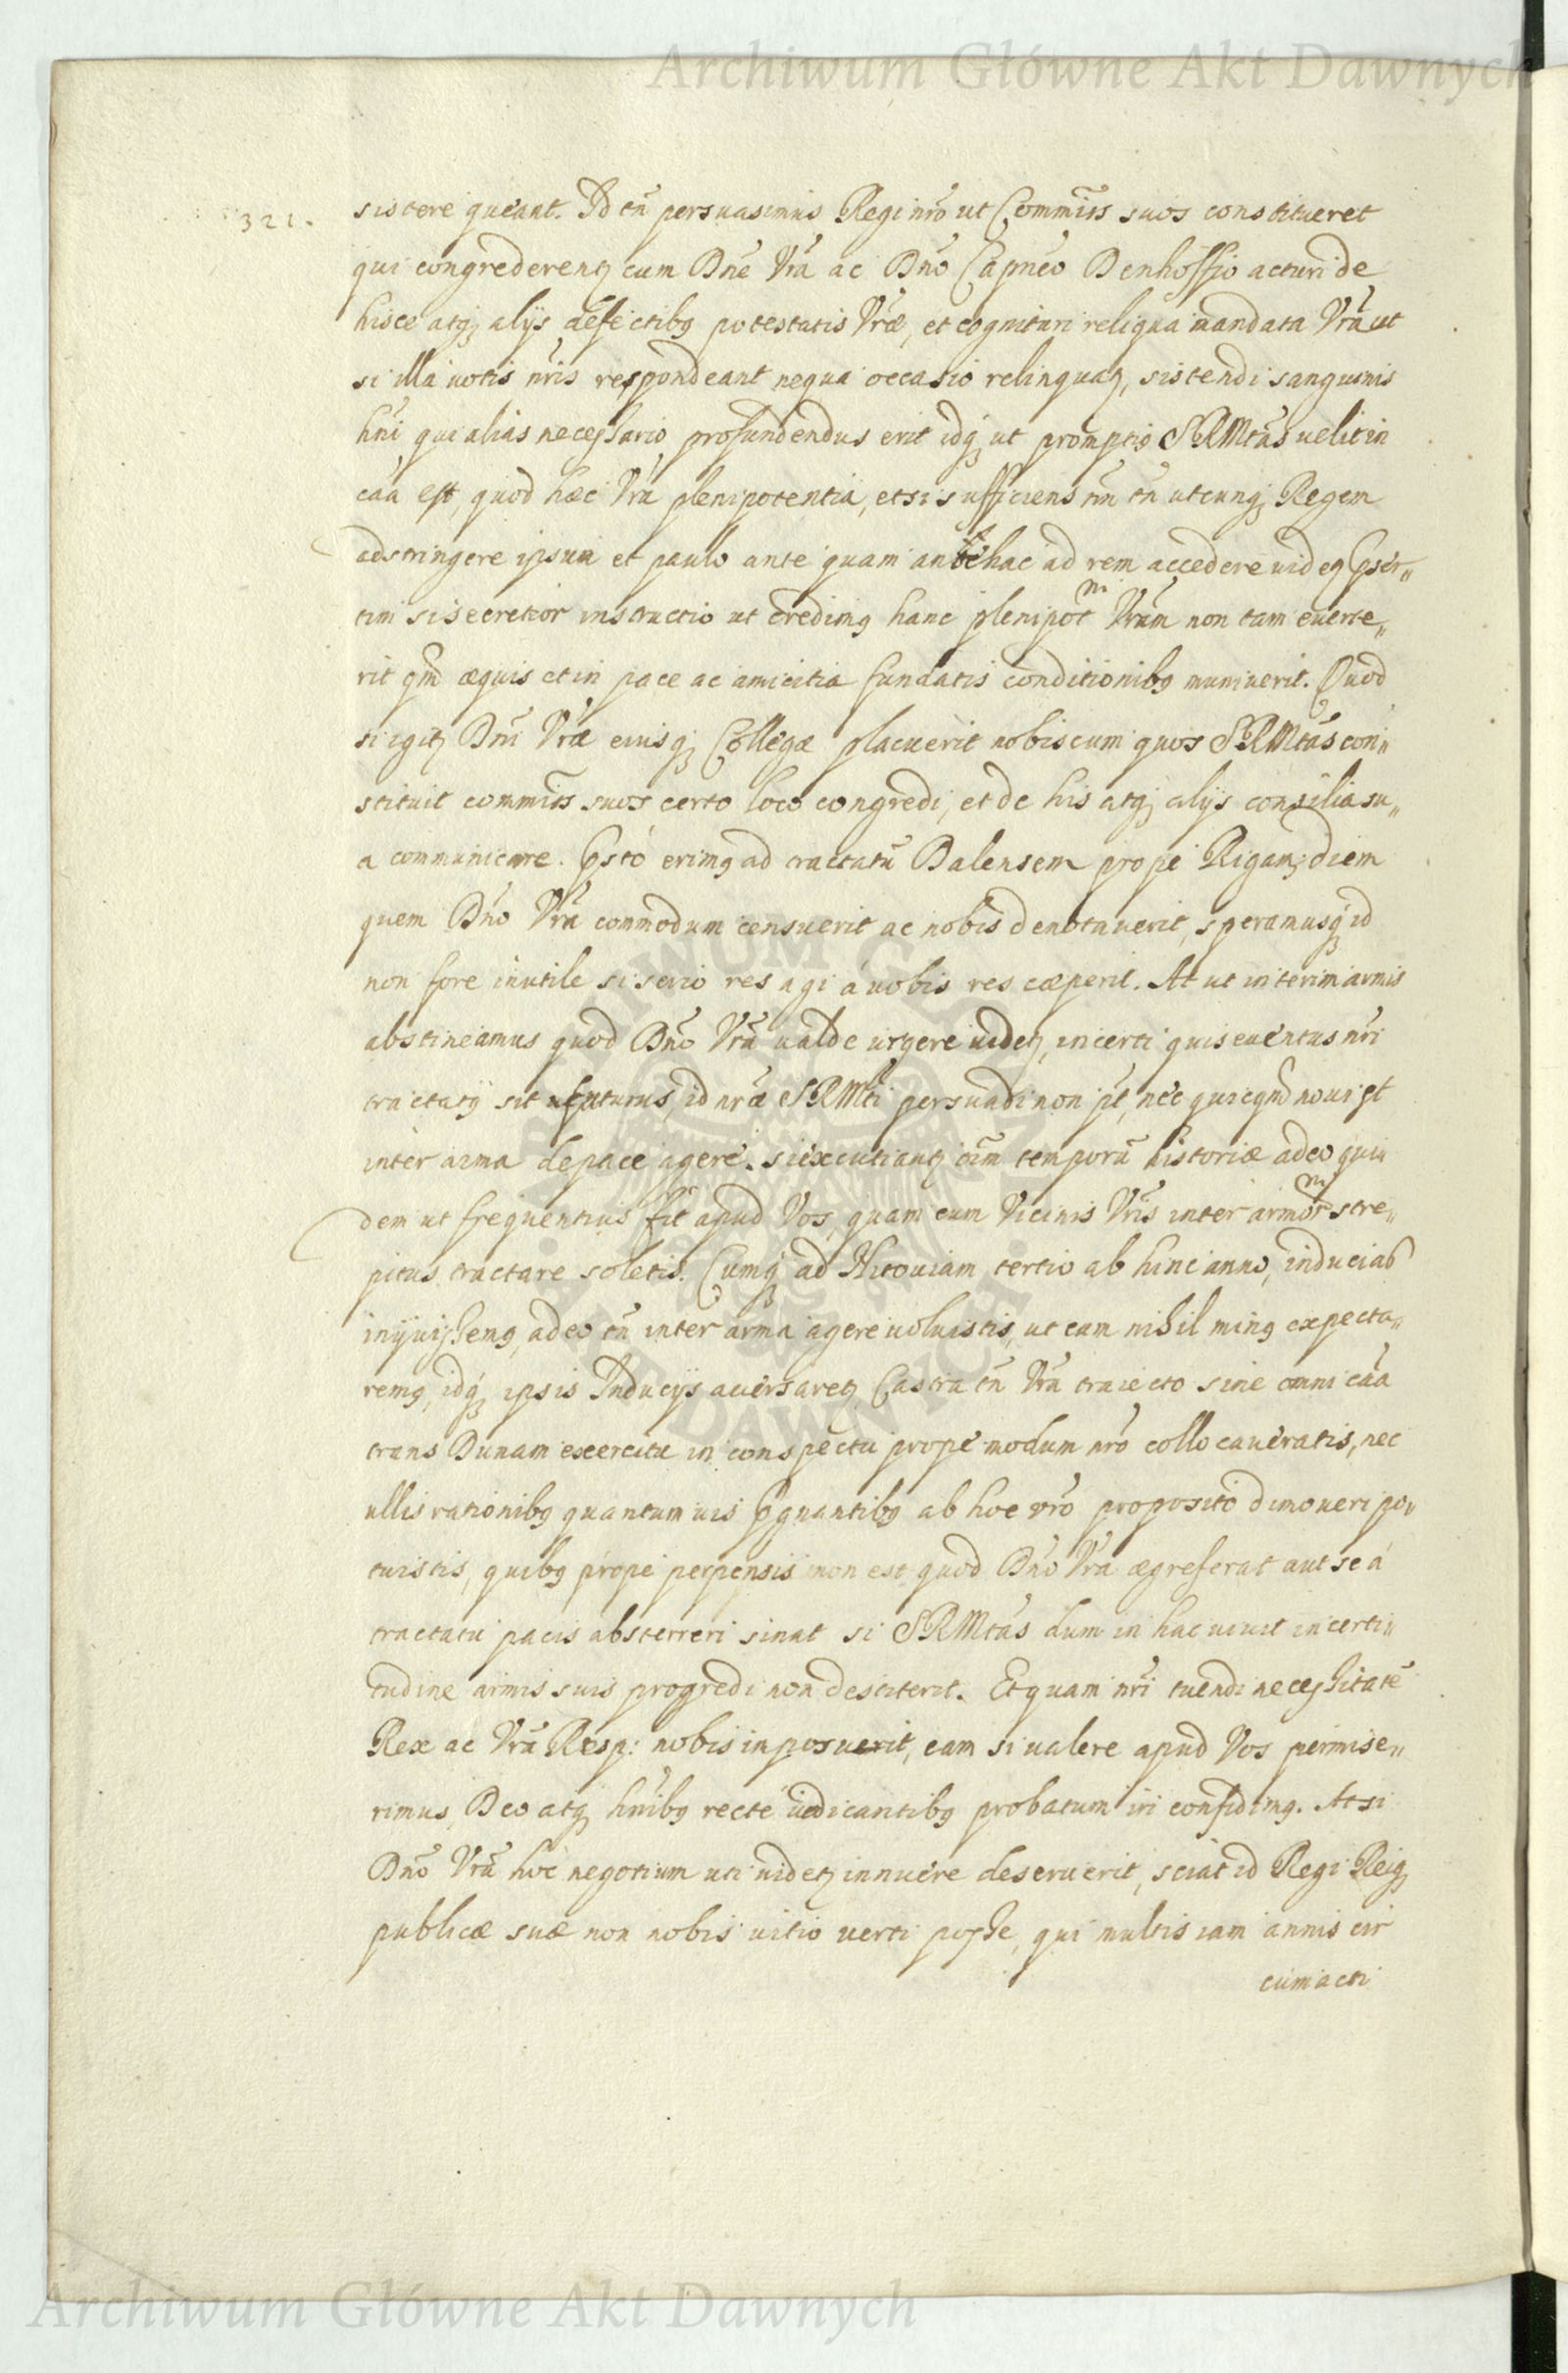 Archiwum Główne Akt Dawnych
321.
sistere queant. Id tñ persuasimus Regi nr̃o ut Commiss̃ suos constitueret
qui congrederentʒ cum Dñe Vr̃a ac Dño Capneo Denhoffio acturi de
hisce atqʒ alijs defectibꝯ potestatis Vr̃æ, et cognituri reliqua mandata Vr̃a ut
si illa uotis nr̃is respondeant nequa occasio relinquatʒ, sistendi sanguinis
hñi qui alias necessario profundendus erit idqʒ ut promptiꝯ SRMtas uelit in
cãa est, quod hæc Vr̃a plenipotentia, etsi sufficiens nõn tñ utcunqʒ Regem
adstringere ipsum et paulo ante quam antehac ad rem accedere uidetꝯ Pser„
tim si secretior instructio ut credimꝯ hanc plenipotm Vr̃am non tam euerte„
rit qm̃ æquis et in pace ac amicitia fundatis conditionibꝯ muniuerit. Quod
si igitʒ Dñi Vr̃æ eiusqʒ Collegæ placuerit nobiscum quos SRMtas con„
stituit commiss̃ suos certo loco congredi, et de his atqʒ alijs consilia su„
a communicare. Pstó erimꝯ ad tractatũ Dalensem prope Rigam, diem
quem Dño Vr̃a commodum censuerit ac nobis denotauerit, speramusqʒ id
non fore inutile si serio res agi á uobis res cæperit. At ut interim armis
abstineamus quod Dño Vr̃a ualde urgere uidetʒ, incerti quis euentus nr̃i
tractatꝯ sit futurus, id nr̃æ SRMti persuaderi non pt̃, nec quicqm̃ noui est
inter arma de pace agere. si excutiantʒ oĩm temporũ historiæ adeo qui„
dem ut frequentius fit apud Vos, quam cum Vicinis Vr̃is inter armorm stre„
pitus tractare soletis. Cumqʒ ad Mitouiam tertio ab hinc anno, inducias
inijuissemꝯ, adeo tñ inter arma agere uoluistis, ut cum nihil minꝯ expecta„
remꝯ, idqʒ ipsis Inducijs aduersaretʒ Castra tñ Vr̃a traiecto sine omni cãa
trans Dunam exercitu in conspectu prope modum nr̃o collocaueratis, nec
ullis rationibꝯ quantumuis Pgnantibꝯ ab hoc vr̃o proposito dimoueri po„
tuistis, quibꝯ prope perpensis non est quod Dño Vr̃a ægre ferat aut se á
tractatu pacis absterreri sinat si SRMtas dum in hac uiuit incerti„
tudine armis suis progredi non destiterit. Et quam nr̃i tuendi necessitatẽ
Rex ac Vr̃a Resp: nobis imposuerit, eam si ualere apud Vos permise„
rimus, Deo atqʒ hñibꝯ recte iudicantibꝯ probatum iri confidimꝯ. At si
Dño Vr̃a hoc negotium uti uidetʒ innuere deseruerit, sciat id Regi Reiqʒ
publicæ suæ non nobis uitio uerti posse, qui multis iam annis cir
cumacti
Archiwum Główne Akt Dawnych